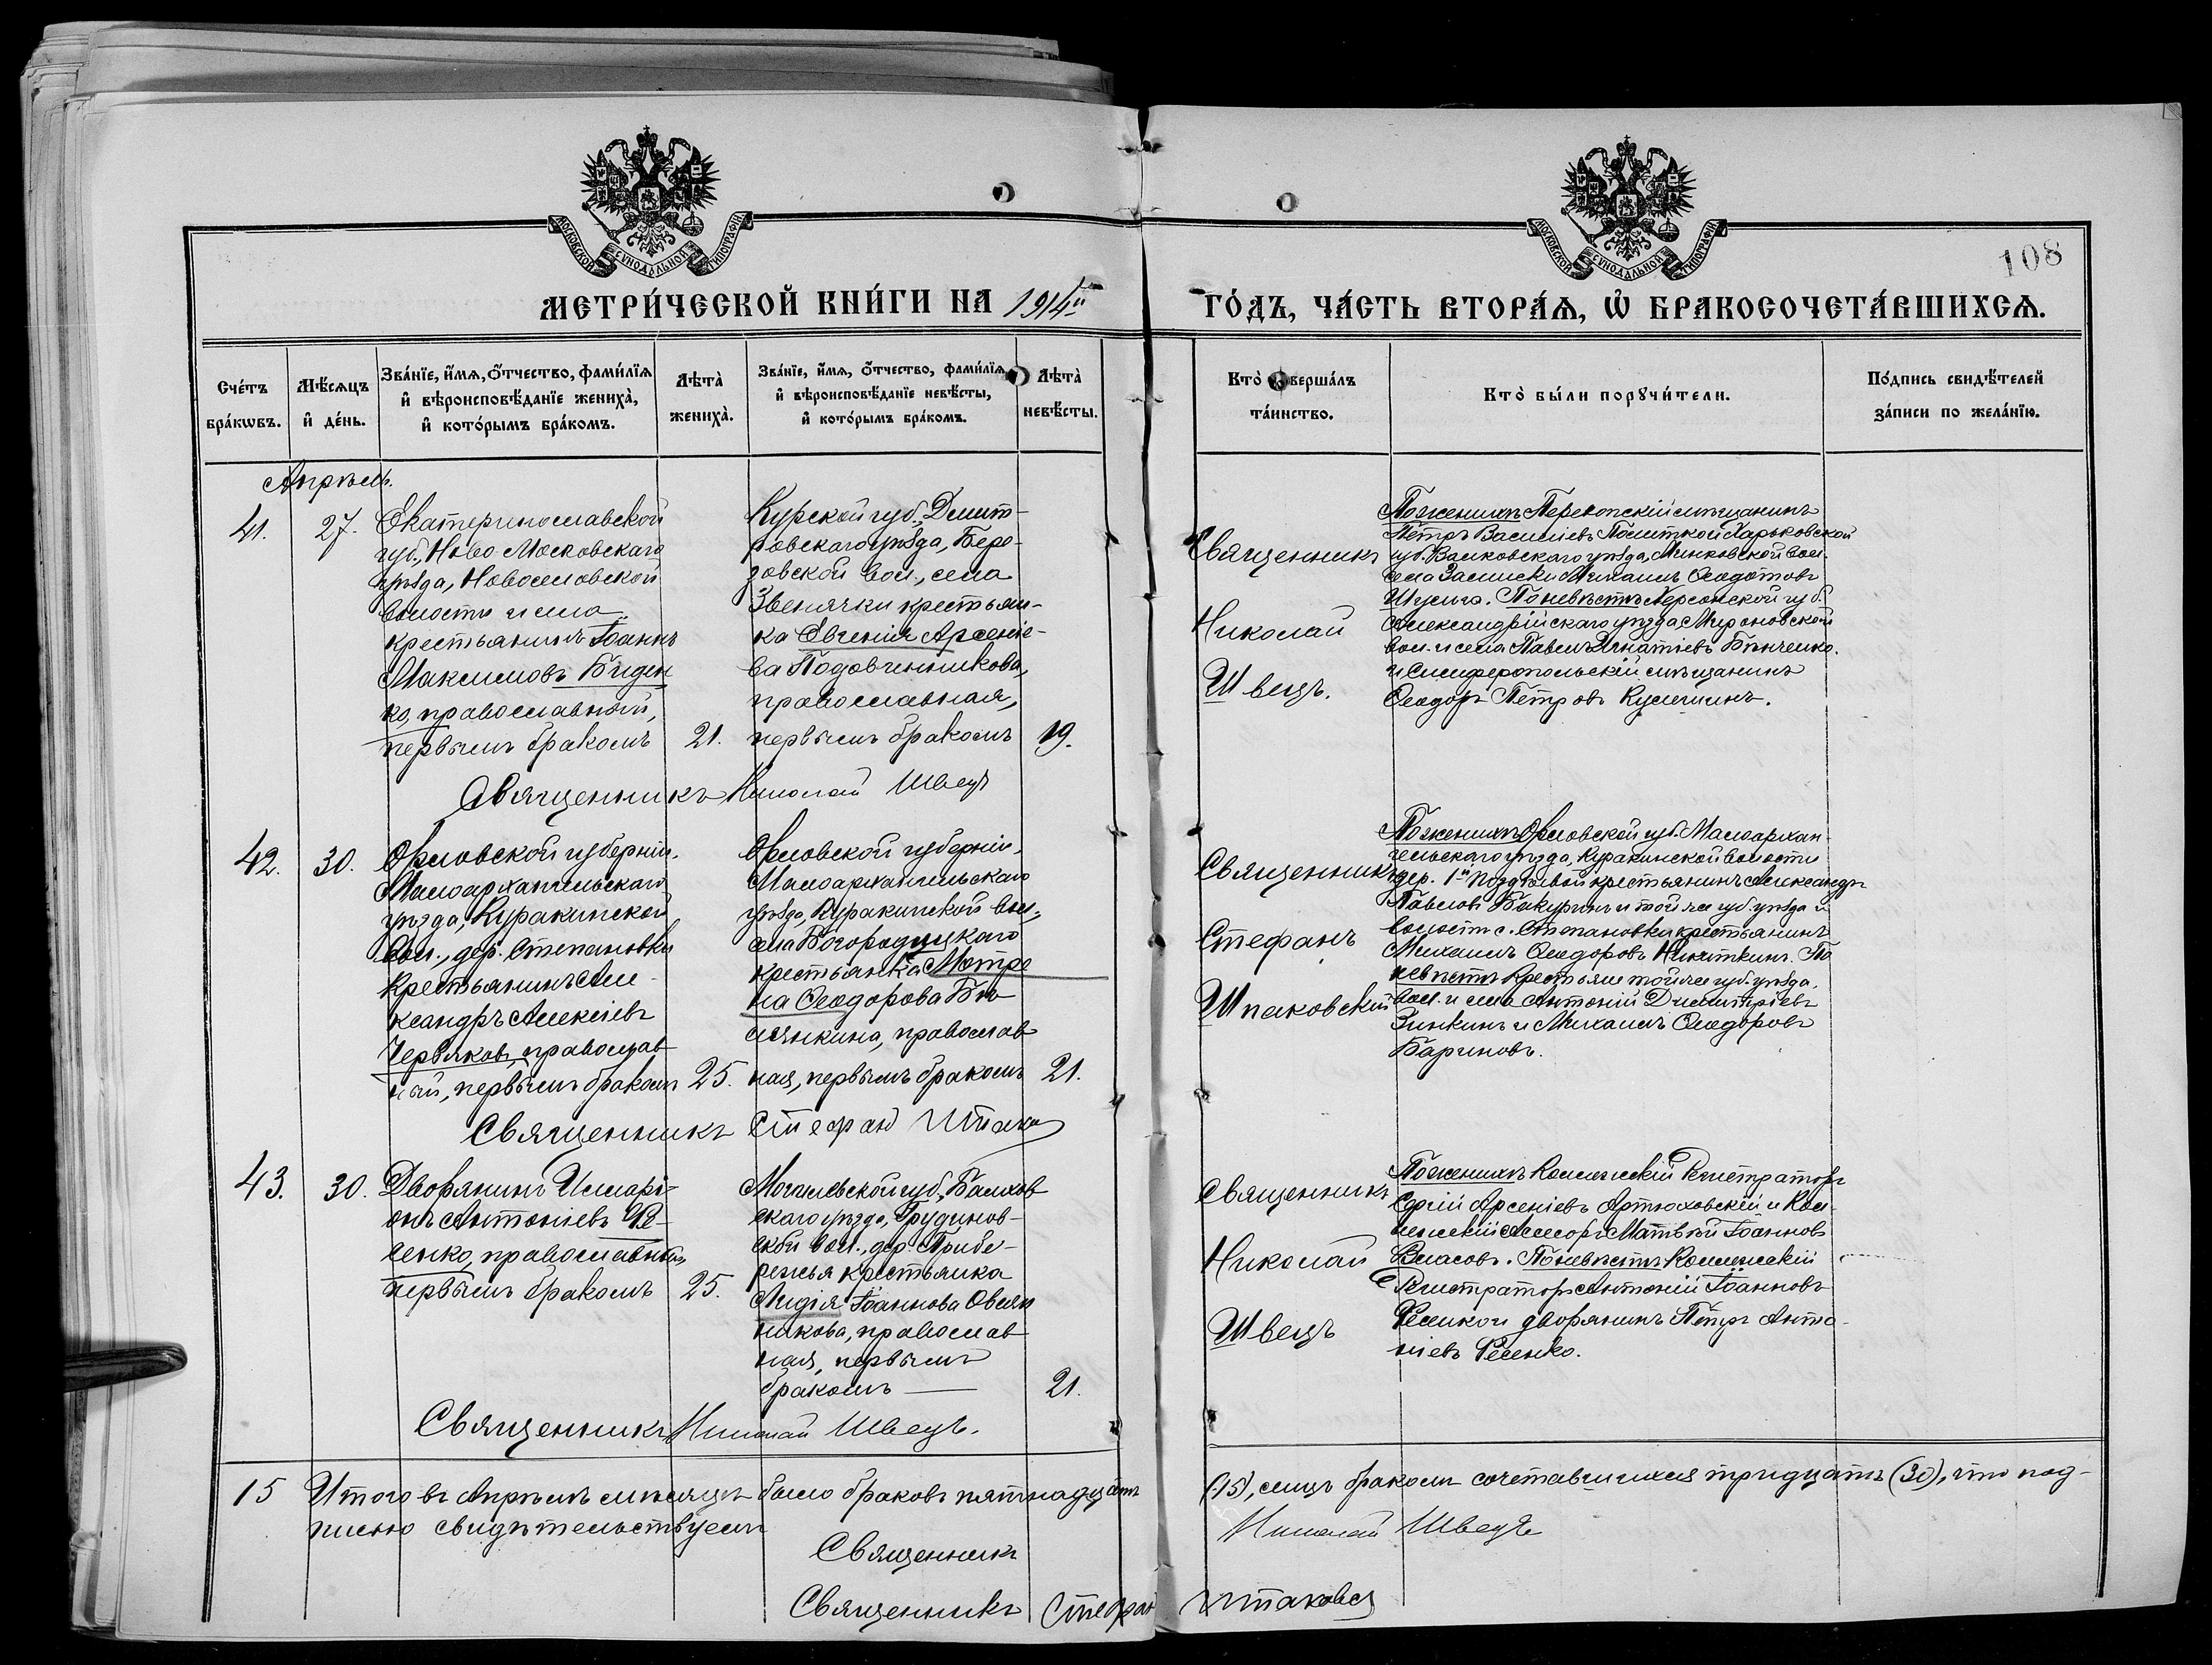 МОСКОВСКОЙ СУНОДАЛЬНОЙ ТИПОГРАФІИ
МОСКОВСКОЙ СУНОДАЛЬНОЙ ТИПОГРАФІИ
108
МЕТРИ́ЧЕСКОЙ КНИ́ГИ НА 1914й ГО́ДЪ, ЧА́СТЬ ВТОРА́Ѧ, Ѡ҆ БРАКОСОЧЕТА́ВШИХСѦ.
Сче́тъ бра́кѡвъ.
Мѣ́сѧцъ и҆ де́нь.
Зва́нїе, и҆́мѧ, о҆́тчество, фами́лїѧ
и҆ вѣроисповѣ́данїе жениха̀,
и҆ кото́рымъ бра́комъ.
Лѣта̀ жениха̀.
Зва́нїе, и҆́мѧ, о҆́тчество, фами́лїѧ
и҆ вѣроисповѣ́данїе невѣ́сты,
и҆ кото́рымъ бра́комъ.
Лѣта̀ невѣ́сты.
Кто̀ соверша́лъ та́инство.
Кто̀ бы́ли порꙋчи́тели.
По́дпись свидѣ́телей
за́писи по жела́нїю.
Апрѣль.
41.
27.
Екатеринославской
губ., Ново Московскаго
уѣзда, Новоселовской
волости и села
крестьянинъ Іоаннъ
Максимовъ Биден
ко, православный,
первымъ бракомъ
21.
Курской губ., Дмит-
ровскаго уѣзда, Бере-
зовской вол., села
Звенячки крестьян-
ка Евгенія Арсеніе-
ва Подовинникова,
православная,
первымъ бракомъ
19.
Священникъ
Николай
Швецъ.
По женихѣ Перекопскій мѣщанинъ
Петръ Василіевъ Харьковской
губ. Валковскаго уѣзда, Минковской вол.
села Михаилъ Ѳеодотовъ
По невѣстѣ Херсонской губ.
Александрійскаго уѣзда, Мироновской
вол. и села Павелъ Игнатіевъ
и Симферопольскій мѣщанинъ
Ѳеодоръ Петровъ
Священникъ Николай Швецъ
42.
30.
Орловской губерніи,
Малоархангельскаго
уѣзда, Куракинской
вол., дер. Степановки
крестьянинъ Але-
ксандръ Алексіевъ
Червяковъ, православ
ный, первымъ бракомъ
25.
Орловской губерніи,
Малоархангельскаго
уѣзда, Куракинской вол.,
села Богородицкаго
крестьянка Матре
на Ѳеодорова
православ
ная, первымъ бракомъ
21.
Священникъ
Стефанъ
Шпаковскій
По женихѣ Орловской губ. Малоархан-
гельскаго уѣзда, Куракинской волости
дер. 1й крестьянинъ Александръ
Павловъ Бакуринъ и той же губ. уѣзда и
волости с. Степановки крестьянинъ
Михаилъ Ѳеодоровъ Никиткинъ. По
невѣстѣ крестьяне той же губ. уѣзда,
вол. и села Антоній Димитріевъ
Зинкинъ и Михаилъ Ѳеодоровъ
Бариновъ.
Священникъ Стефан Шпаков
43.
30.
Дворянинъ Иларі-
онъ Антоніевъ Ре-
ленко, православный,
первымъ бракомъ
25.
Могилевской губ., Быхов
скаго уѣзда, Грудинов-
ской вол., дер. Прибе-
режья крестьянка
Лидія Іоаннова Овсян
никова, православ
ная, первымъ
бракомъ —
21.
Священникъ
Николай
Швецъ
По женихѣ Коллежскій Регистраторъ
Сергій Арсеніевъ Артюховскій и Кол-
лежскій Асессоръ Матвѣй Іоанновъ
Власовъ. По невѣстѣ Коллежскій
Регистраторъ Антоній Іоанновъ
дворянинъ Петръ Анто-
ніевъ Реленко.
Священникъ Николай Швецъ.
15 Итого въ Апрѣлѣ мѣсяцѣ было браковъ пятнадцать (15), лицъ бракомъ сочетавшихся тридцать (30), что под-
писью свидѣтельствуемъ
Священникъ Николай Швецъ
Священникъ Стефан Шпаковск